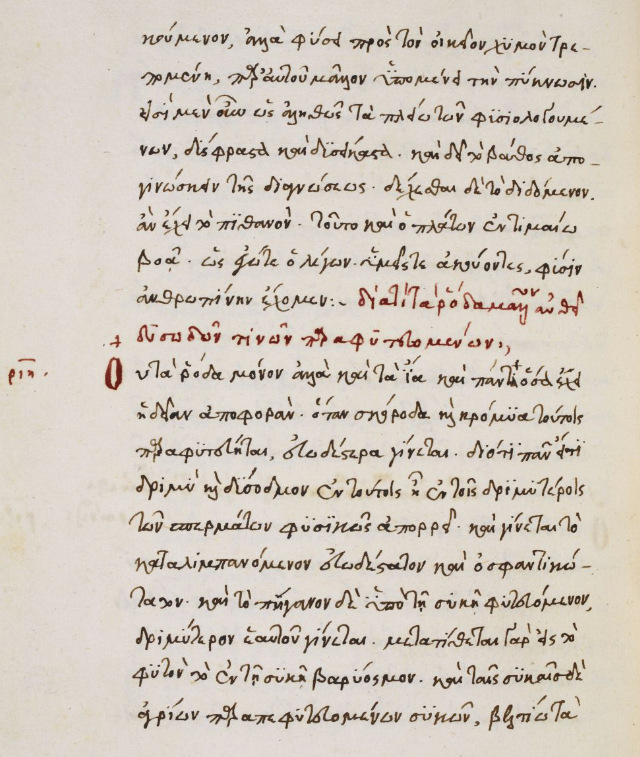 κούμενον, ἀλλὰ φύσει πρὸς τὸν οἰκεῖον χϋμὸν τρε-
πομένη, παρ' αὐτοῦ μᾶλλον ὑπομένει τὴν πύκνωσιν.
εἰσὶ μὲν οὖν ὡς ἀληθῶς τὰ πλείω τῶν φϋσιολογουμέ-
νων, δϋσέφραστα καὶ δϋσείκαστα. καὶ δεῖ τὸ βάθος ἀπο-
γινώσκειν τῆς διαγνώσεως. δέχεσθαι δὲ τὸ διδόμενον.
ἂν ἔχει τὸ πϊθανόν. τοῦτο καὶ ὁ πλάτων ἐν τιμαίω
βοᾶ. ὡς ἐγώτε ὁ λέγων. ὑμεῖς τε ἀκούοντες, φύσιν
ἀνθρωπίνην ἔχομεν:~ διατί τὰ ῥόδα μᾶλλον εὐώδη
δϋσωδῶν τινῶν παραφϋτευομένων:,
ριη. Οὐ τὰ ῥόδα μόνον ἀλλὰ καὶ τὰ ἴα καὶ πάντα ὅσα ἔχει
ἡδεῖαν ἀποφοράν. ὅταν σκόροδα καὶ κρόμϋα τούτοις
παραφϋτεύηται, εὐωδέστερα γίνεται. διότι πᾶν ἐστι
δριμὺ καὶ δύσοδμον ἐν τούτοις ἢ ἐν τοῖς δριμϋτέροις
τῶν σπερμάτων φϋσϊκῶς ἀπορρεῖ. καὶ γίνεται τὸ
καταλιμπανόμενον εὐωδέστατον καὶ ὀσφαντικώ-
τατον. καὶ τὸ πήγανον δὲ ὑπὸ τῇ συκῇ φϋτευόμενον,
δριμύτερον ἑαυτοῦ γίνεται. μεταπίθεται γὰρ εἰς τὸ
φϋτὸν τὸ ἐν τῇ σϋκῇ βαρύοσμον. καὶ ταῖς σϋκαῖς δὲ
ἀγρίων παραπεφϋτευομένων σϋκῶν, βελτίω τὰ